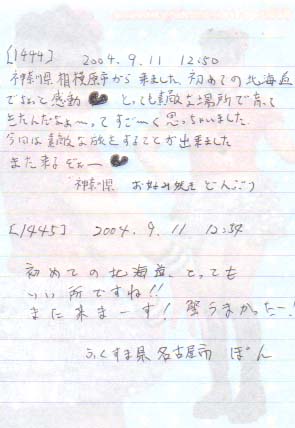 [1444] 2004.9.11 12:50
神奈川県相模原市から来ました 初めての北海道
でちょっと感動♥ とっても素敵な場所で育って
きたんだなぁ〜ってすご〜く思っちゃいました。
今回は素敵な旅をすることが出来ました
また来るぞぉー♥
神奈川県 お好み焼き どんぶり
[1445] 2004.9.11 12:54
初めての北海道、とっても
いい所ですね!!
また来まーす! 蟹うまかったー!
ふくすま県名古屋市 ぽん